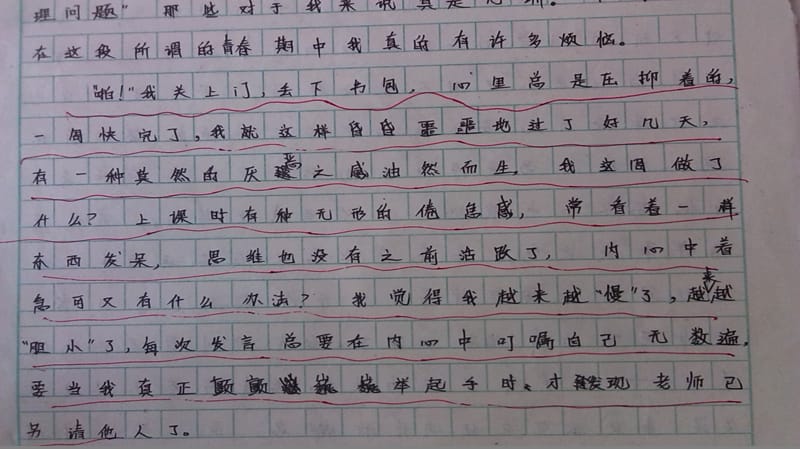 理问题”那些对于我来说真是
在这段所谓的青春期中我真的有许多烦恼。
“啪!”我关上门，丢下书包，心里总是压抑着的，
一周快完了，我就这样昏昏噩噩地过了好几天，
有一种莫然的厌恶之感油然而生，我这周做了
什么？上课时有种无形的倦怠感，常看着一样
东西发呆，思维也没有之前活跃了，内心中着
急可又有什么办法？我觉得我越来越“慢”了，越来越
“胆小”了，每次发言总要在内心中叮嘱自己无数遍，
要当我真正颤颤巍巍举起手时，才发现老师已
另请他人了。